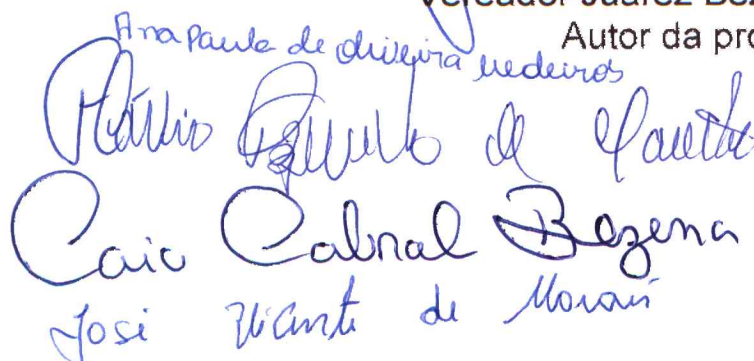 Vereador Juarez Bez
Autor da pro
Ana Paula de Oliveira Medeiros
de
Caio Cabral Bezerra
José Vicente de Morais